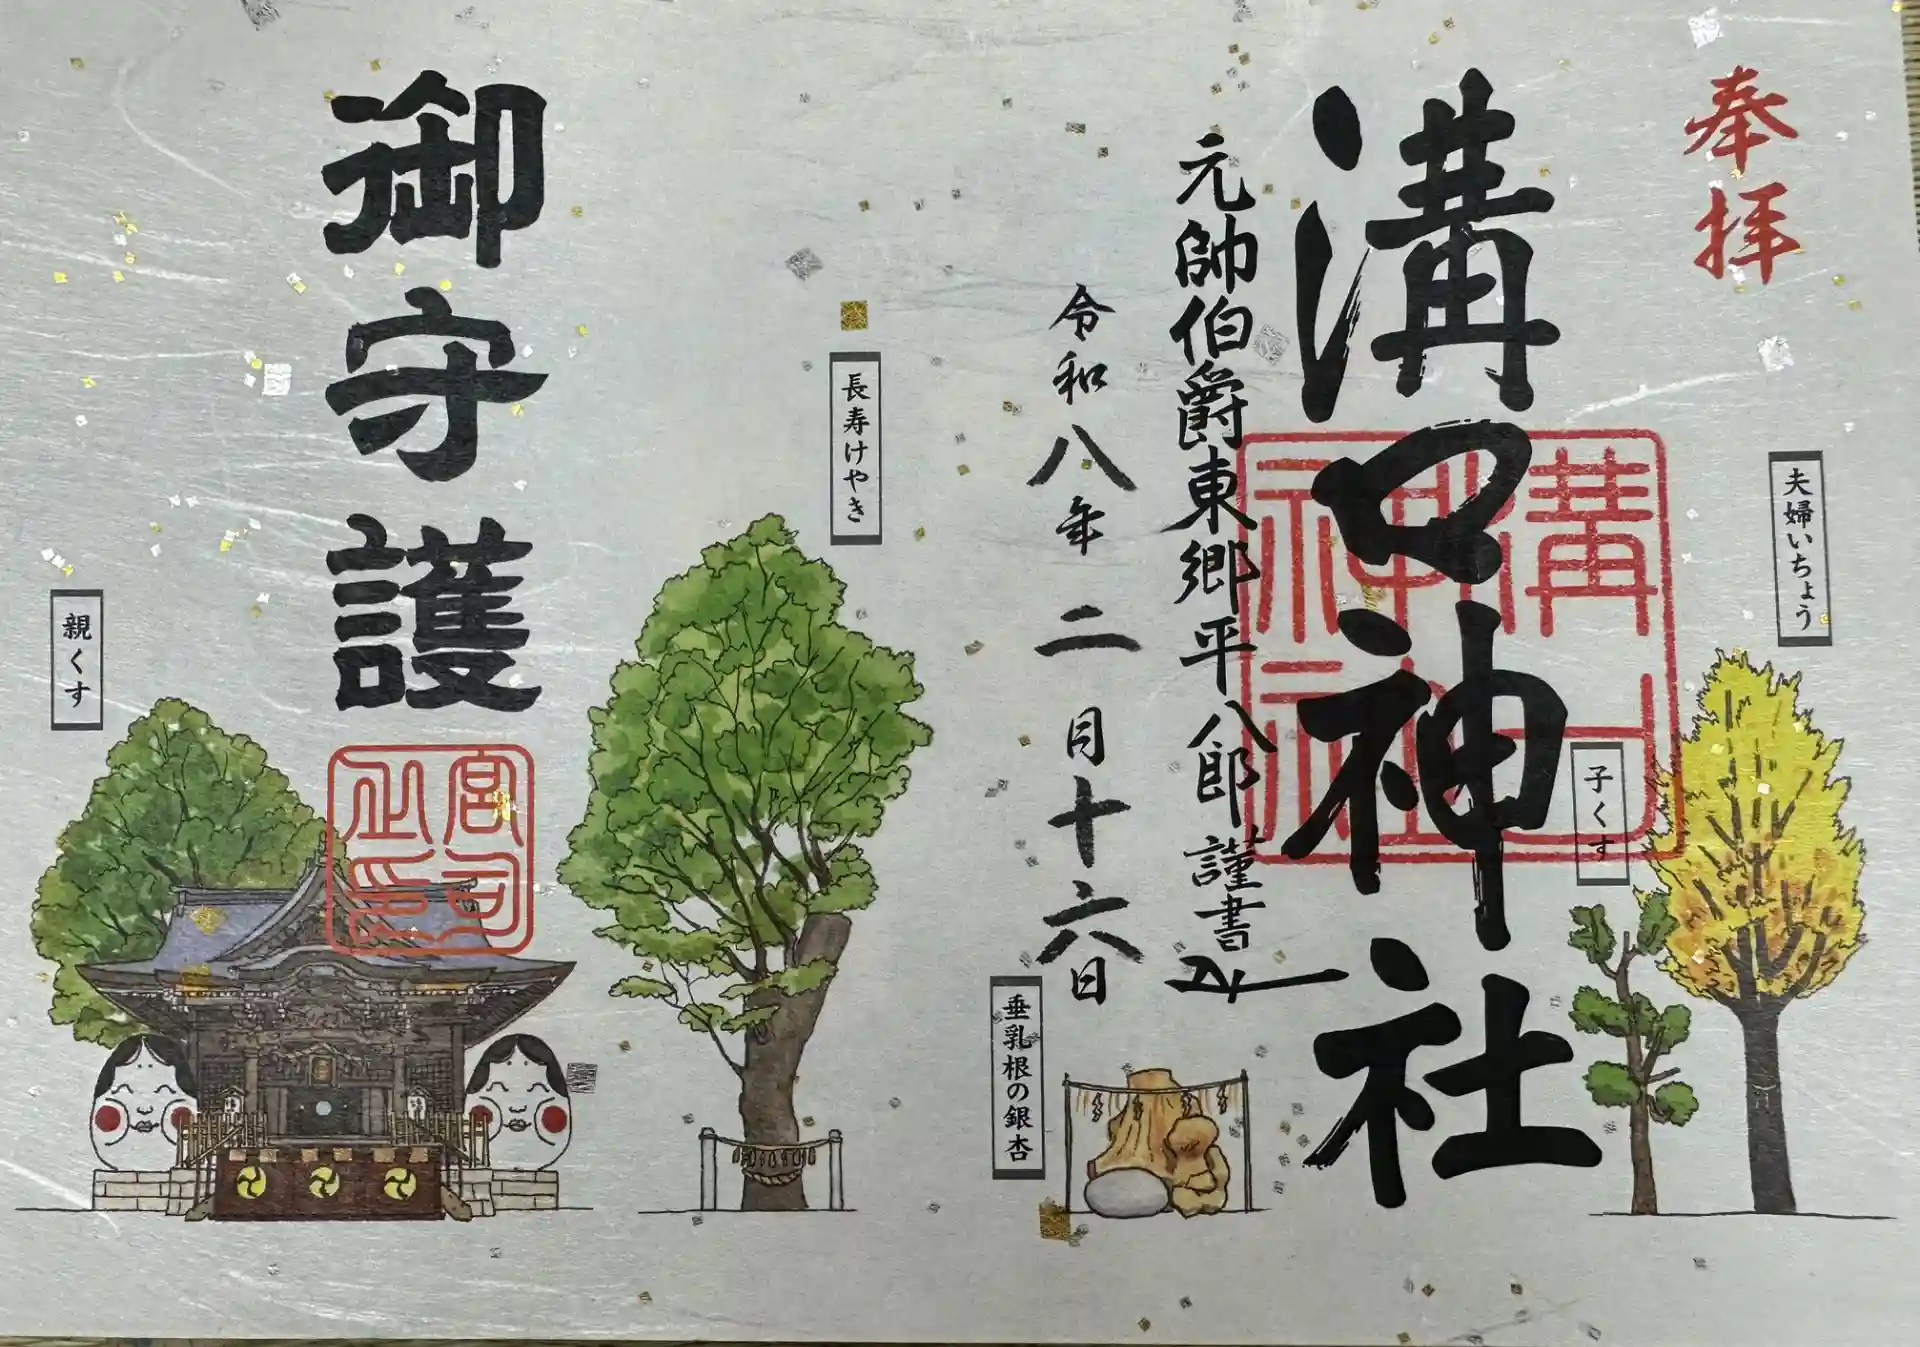 奉拝
夫婦いちょう
子くす
溝口神社
溝口神社
元帥伯爵東郷平八郎謹書
令和八年二月十六日
垂乳根の銀杏
長寿けやき
御守護
宮司之印
親くす